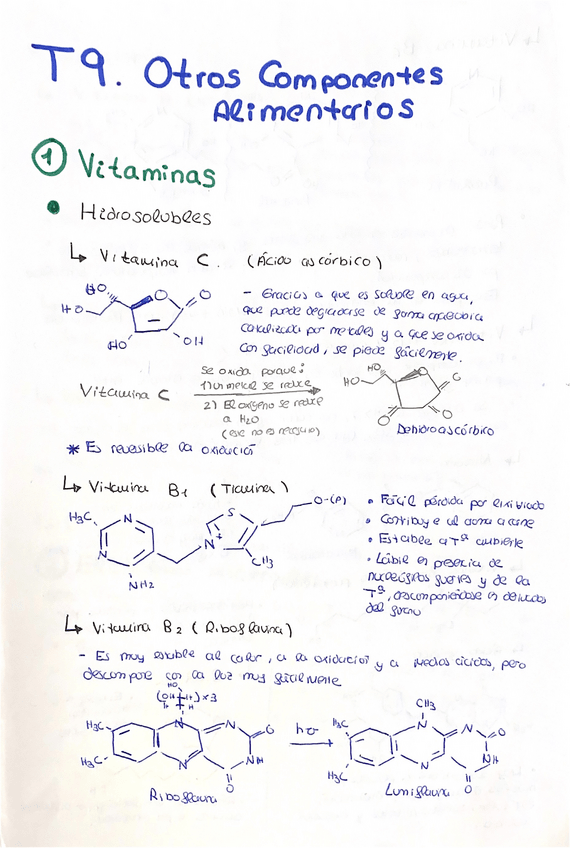 T9. Otros Componentes
Alimentarios
① Vitaminas
• Hidrosolubles
↳ Vitamina C. (Ácido ascórbico)
HO
O
O
HO
HO
OH
- Gracias a que es soluble en agua,
que puede degradarse de forma
catalizada por metales y a que se oxida
con facilidad, se piede fácilmente.
Vitamina C
Se oxida porque:
1) Un metal se reduce
2) El oxígeno se reduce
a H2O
(ese no es necesario)
HO
HO
O
O
O
Dehidroascórbico
* Es reversible la oxidación
↳ Vitamina B1 (Tiamina)
H3C
N
N
NH2
N+
S
CH3
O-(P)
• Fácil pérdida por lixiviado
• Contribuye al aroma a carne
• Estable a Tª ambiente
• Lábil en presencia de
nucleófilos fuertes y de la
Tª, descomponiéndose en derivados
del furano
↳ Vitamina B2 (Riboflavina)
- Es muy estable al calor, a la oxidación y a medios ácidos, pero
descompone con la luz muy fácilmente
HO
x3
H3C
H3C
N
N
N
O
NH
O
Riboflavina
hσ
CH3
H3C
H3C
N
N
N
O
NH
O
Lumiflavina